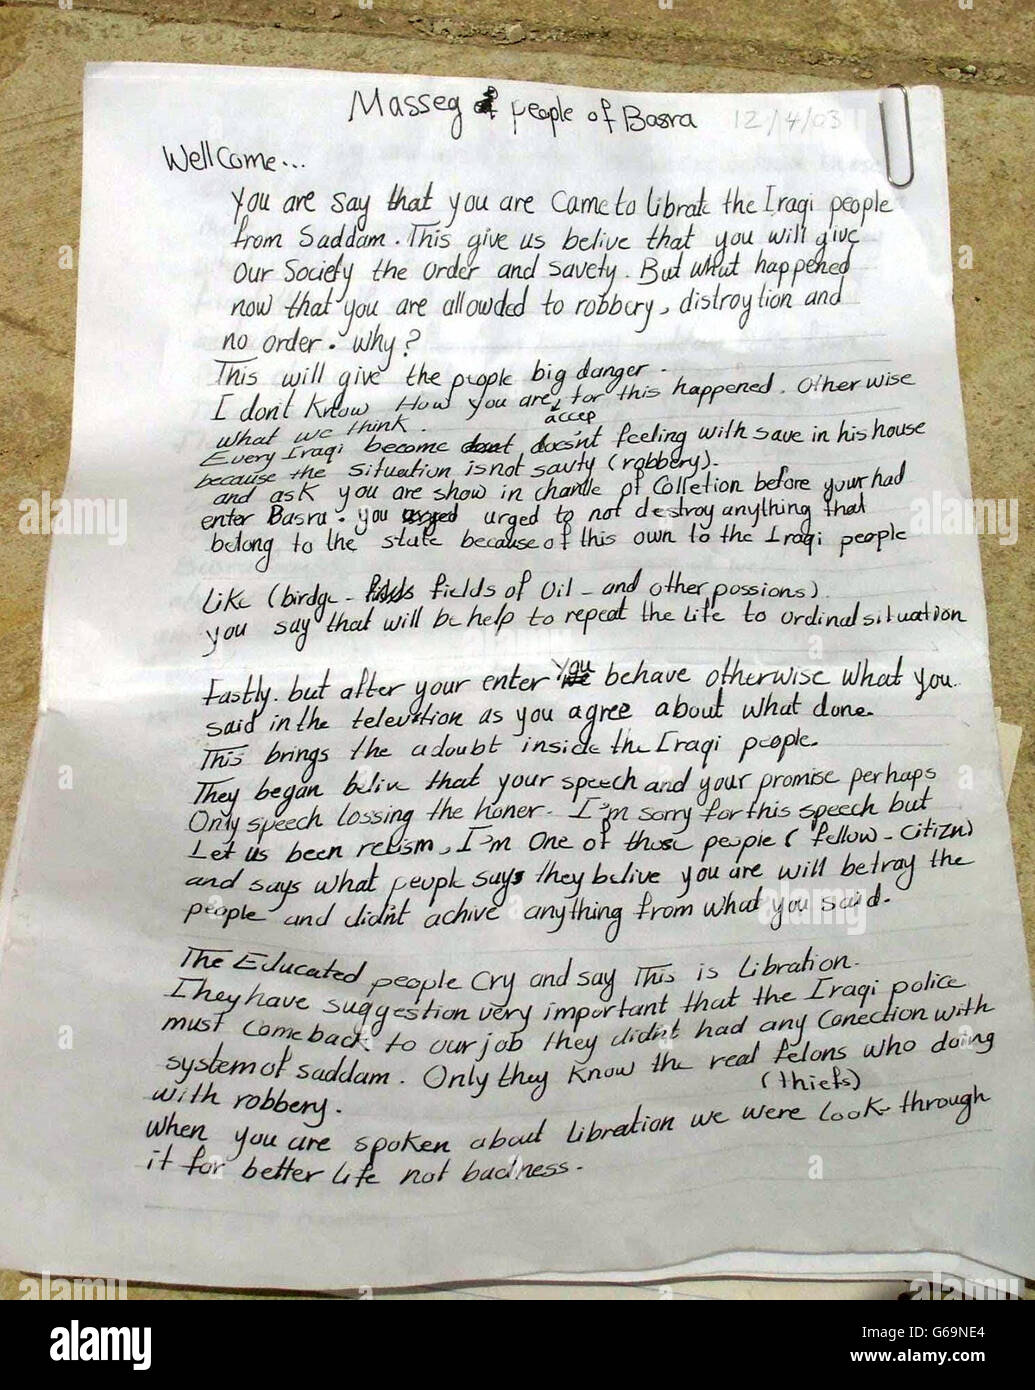 Masseg of people of Basra 12/4/03
Wellcome...
you are say that you are came to librate the Iraqi people
from Saddam. This give us belive that you will give
our Society the order and savety. But what happened
now that you are allowded to robbery, distroytion and
no order. why?
This will give the people big danger.
I don't know How you are accep for this happened. Otherwise
what we think.
Every Iraqi become doesn't feeling with save in his house
because the situation is not savty (robbery).
and ask you are show in chanle of Colletion before your had
enter Basra. you urged to not destroy anything that
belong to the state because of this own to the Iraqi people
Like (birdge - fields of Oil - and other possions)
you say that will be help to repeat the life to ordinal situation
Fastly. but after your enter you behave otherwise what you
said in the television as you agree about what done.
This brings the a doubt inside the Iraqi people.
They began beliv that your speech and your promise perhaps
Only speech lossing the honer. I'm sorry for this speech but
Let us been relism, I'm One of those people (fellow-citizn)
and says what people says they belive you are will betray the
people and didn't achive anything from what you said.
The Educated people Cry and say This is Libration.
They have suggestion very important that the Iraqi police
must come back to our job they didn't had any Conection with
system of saddam. Only they know the real felons who doing
(thiefs)
with robbery.
when you are spoken about libreation we were look through
it for better life not badness.
alamy
a
Image ID: G69NE4
www.alamy.com